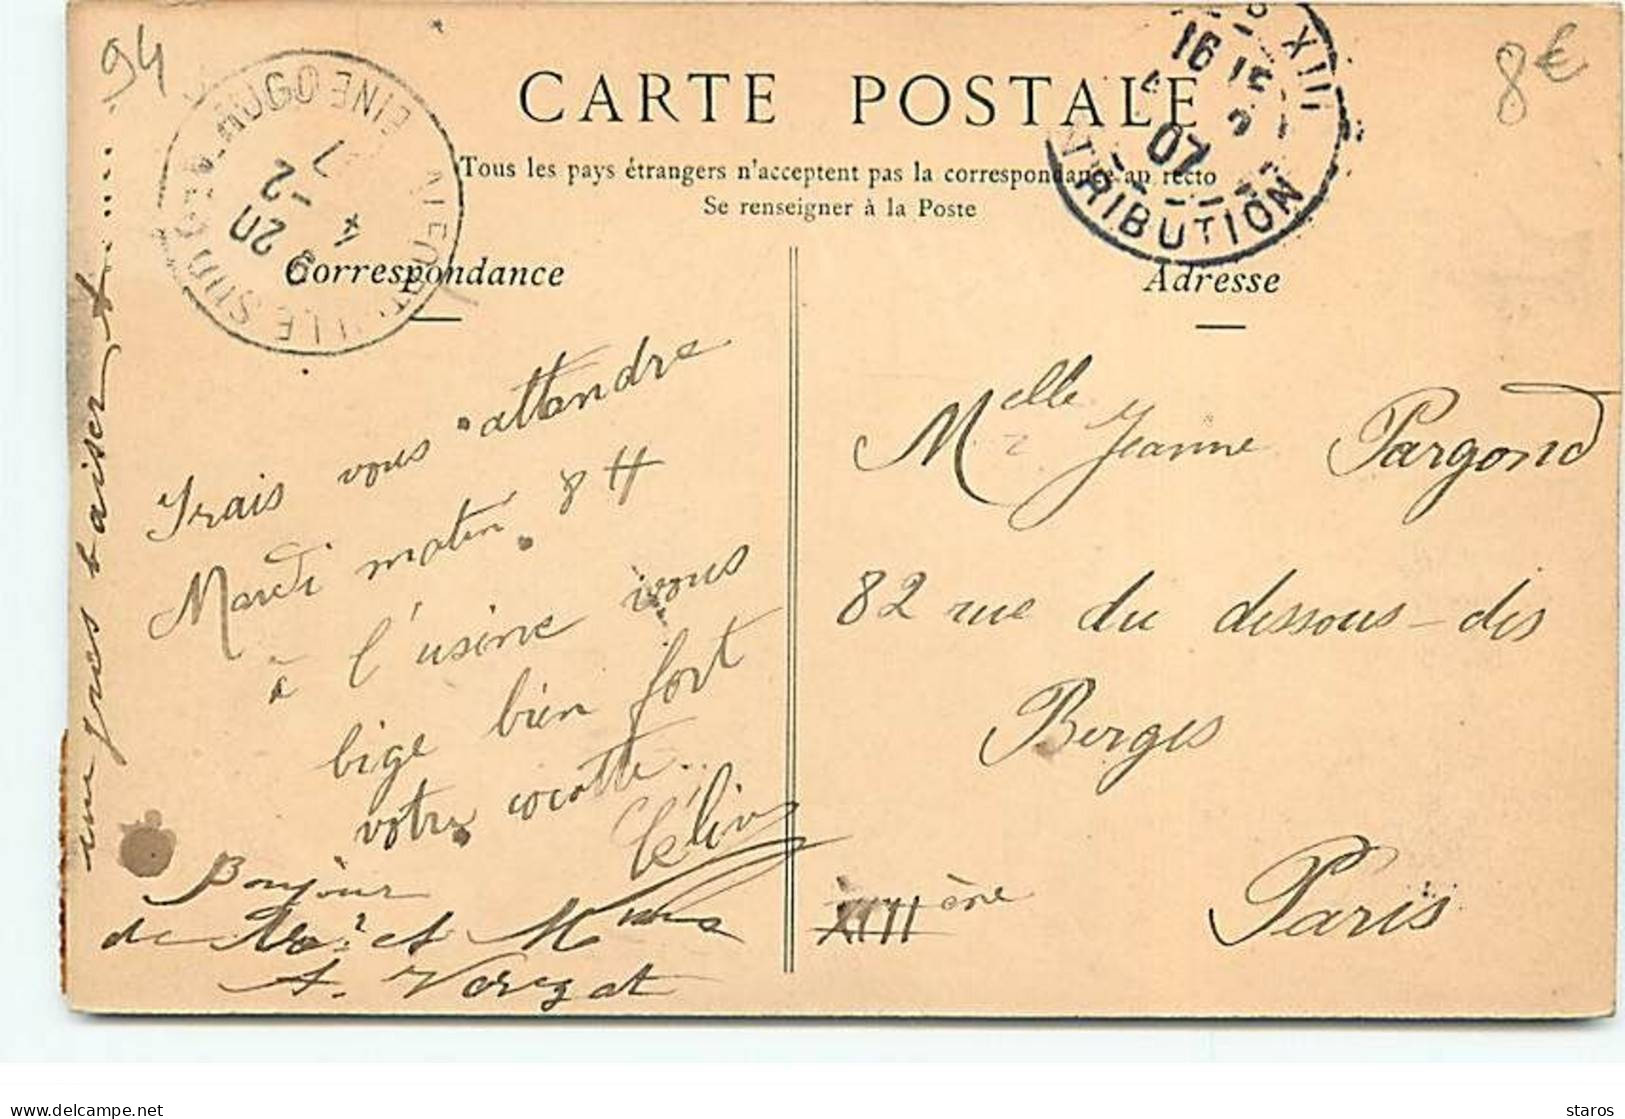 94
8€
CARTE POSTALE
Tous les pays étrangers n'acceptent pas la correspondance au recto
Se renseigner à la Poste
XIII
16 15
4 2
07
DISTRIBUTION
9 20
4 -2
7
Correspondance
Adresse
Irais vous attendre
Mardi matin 8 H
à l'usine vous
bige bien fort
votre cocotte..
Bonjour
de et Mme
A. Vergat
un gros baiser
Melle Jeanne Pargond
82 rue du dessous-des
Berges
Paris
XIII ème
delcampe.net
staros